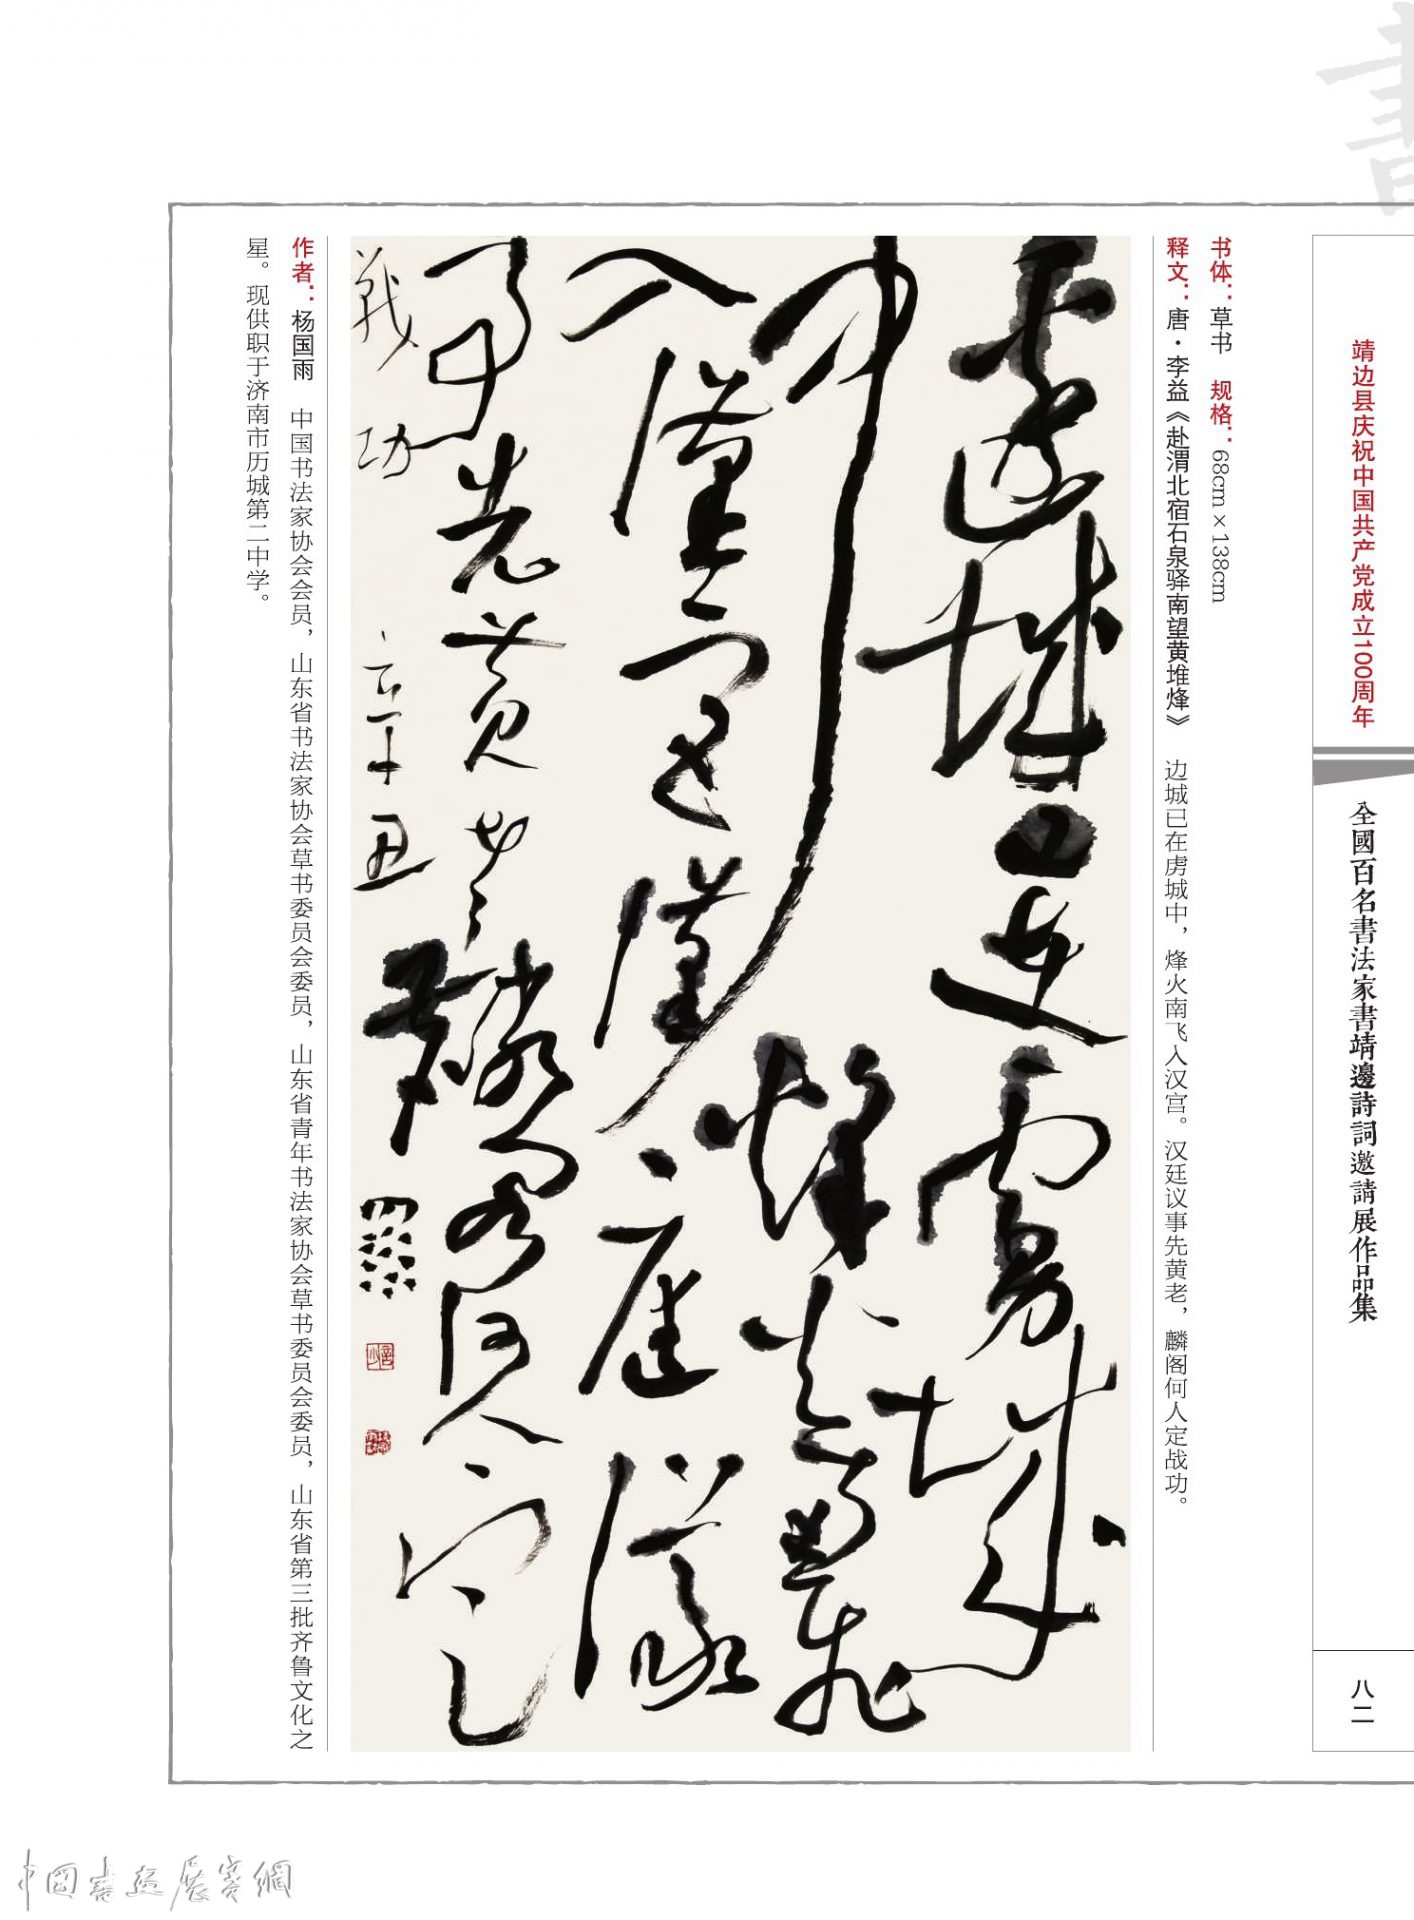 書
靖边县庆祝中国共产党成立100周年
全國百名書法家書靖邊詩詞邀請展作品集
八二
书体：草书 规格：68cm×138cm
释文：唐·李益《赴渭北宿石泉驿南望黄堆烽》 边城已在虏城中，烽火南飞入汉宫。汉廷议事先黄老，麟阁何人定战功。
邊城已在虜城
中烽火南飛
入漢宮漢庭議
事先黃老麟閣何人定
戰功 辛丑
作者：杨国雨 中国书法家协会会员，山东省书法家协会草书委员会委员，山东省青年书法家协会草书委员会委员，山东省第三批齐鲁文化之
星。现供职于济南市历城第二中学。
中國書畫展賽網